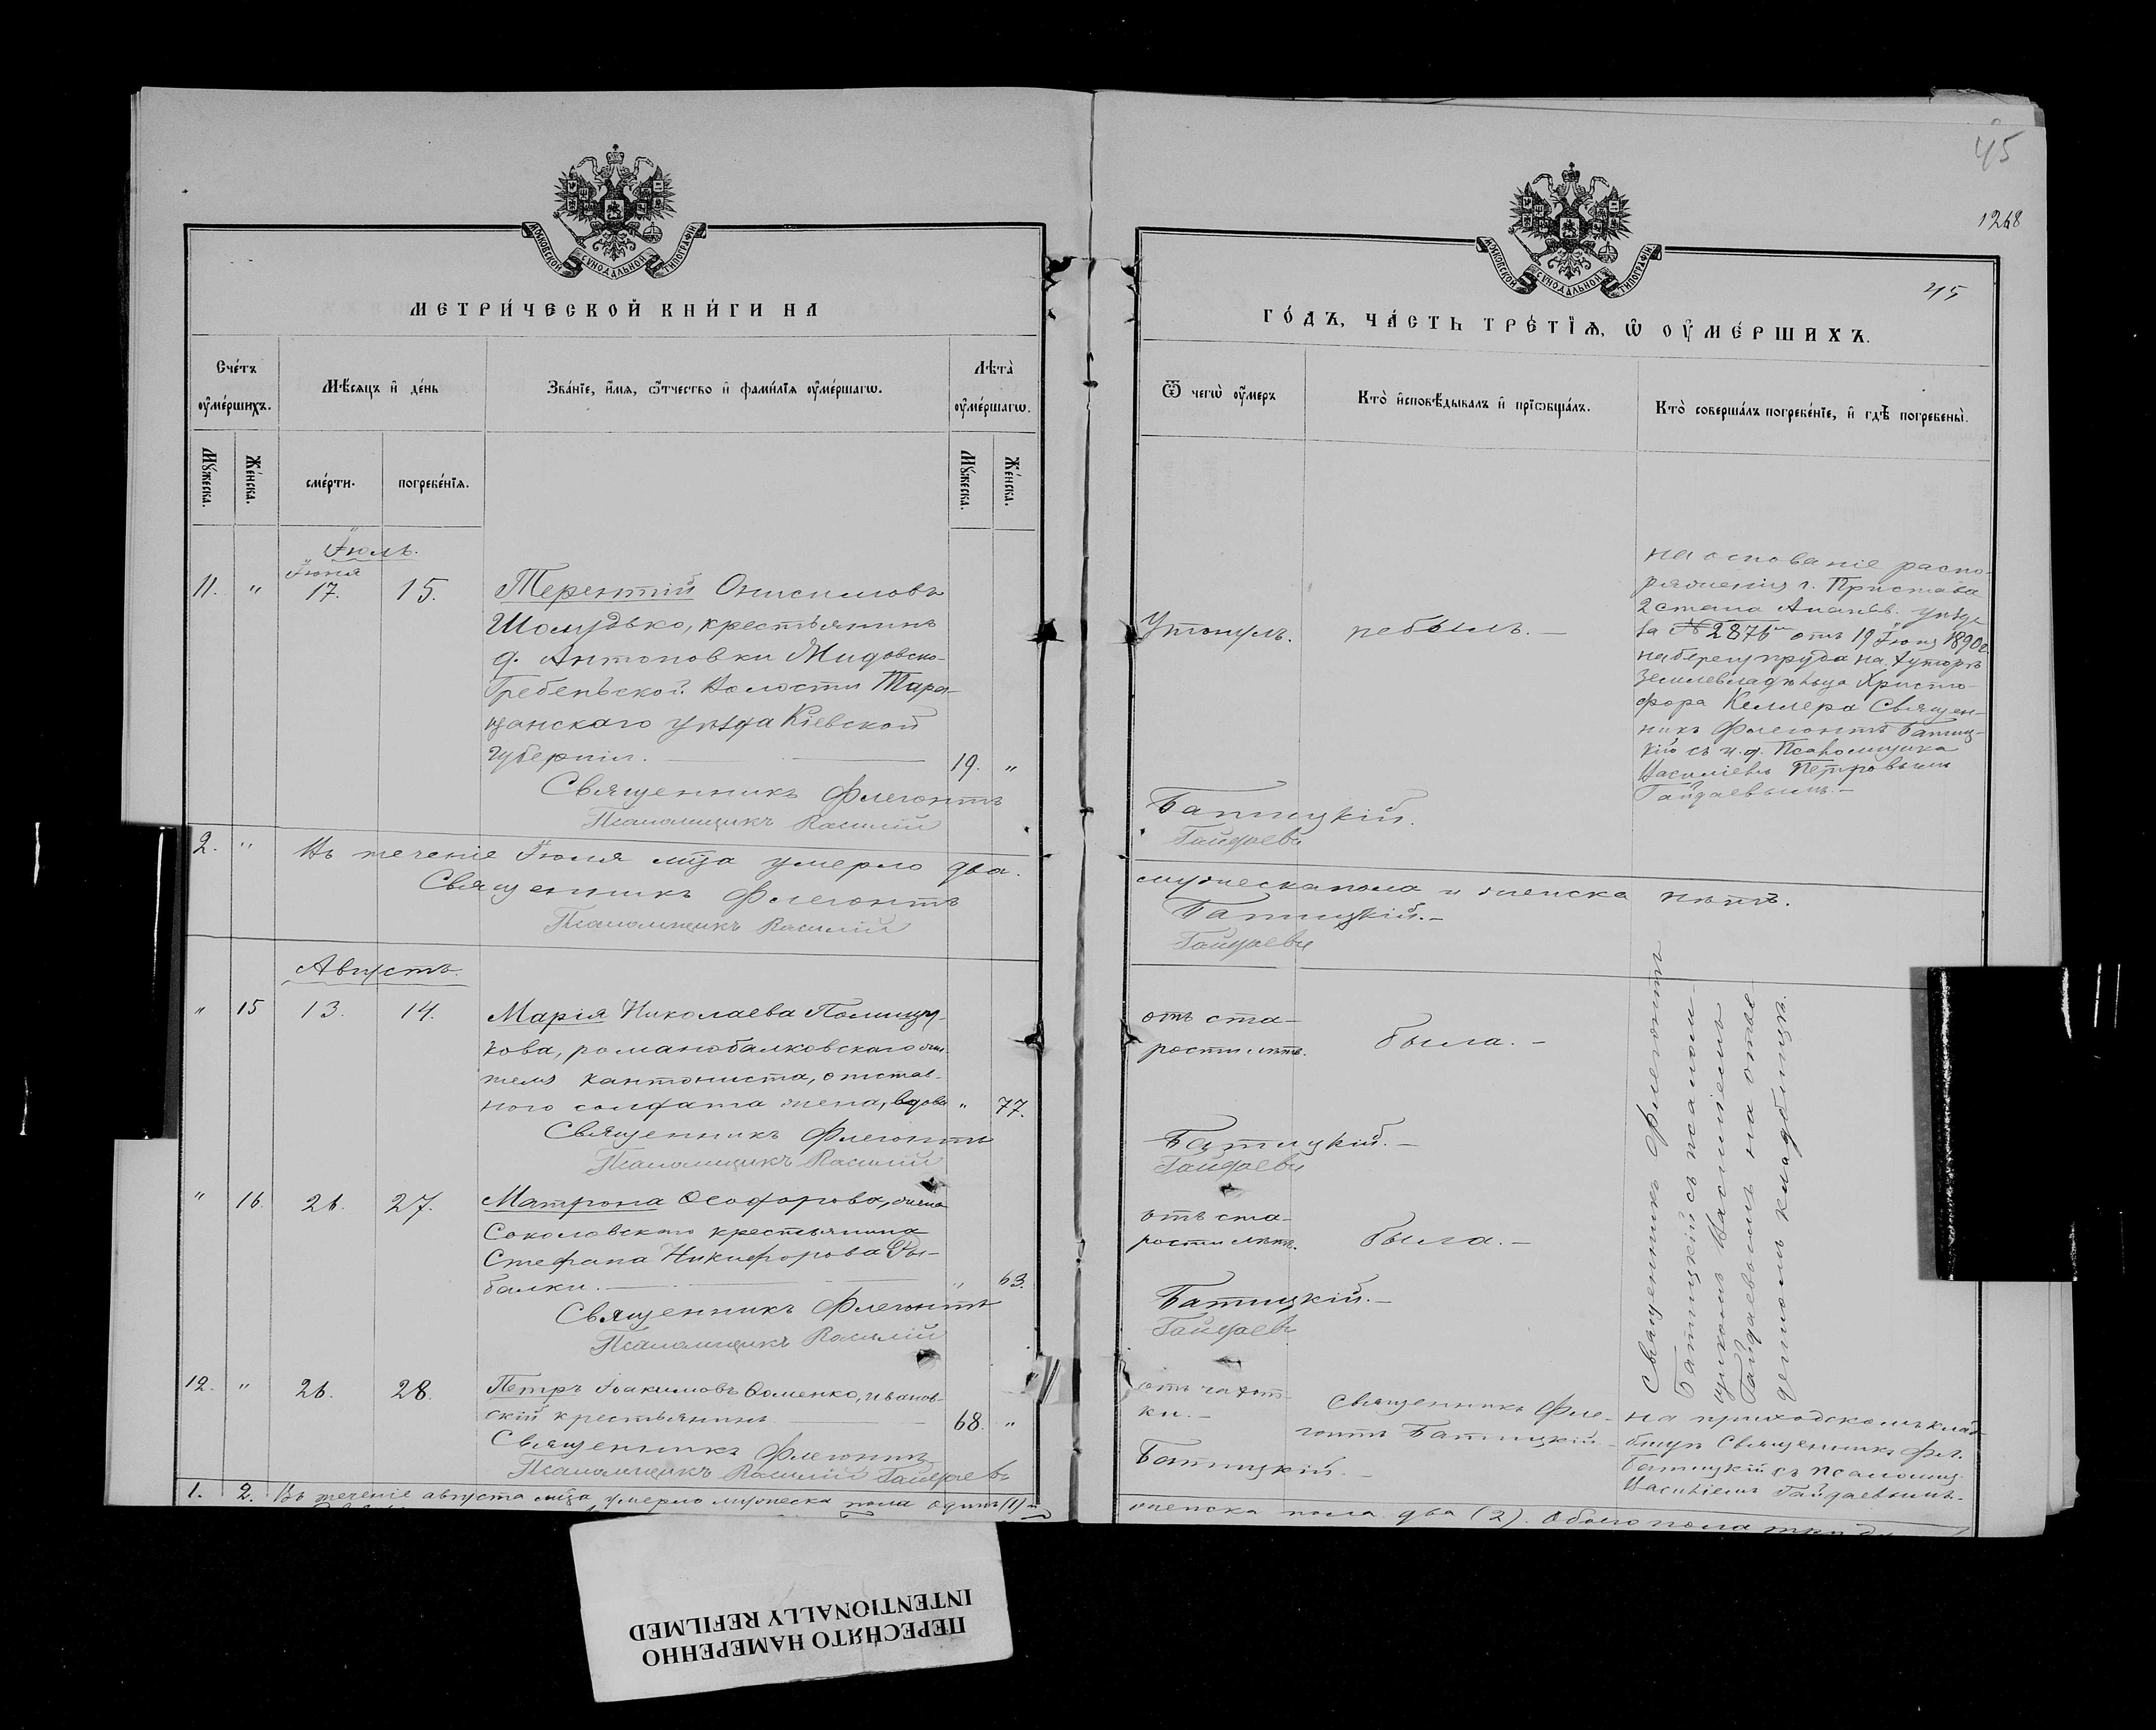 МОСКОВСКОЙ СѴНОДАЛЬНОЙ ТИПОГРАФІИ
МЕТРИ́ЧЕСКОЙ КНИ́ГИ НА
Сче́тъ оу҆ме́ршихъ.
Мѣ́сяцъ и҆ де́нь
Зва́нїе, и҆́мя, ѻ҆́тчество и҆ фами́лїя оу҆ме́ршагѡ.
Лѣ́та оу҆ме́ршагѡ.
Мꙋ́жеска.
Же́нска.
сме́рти.
погребе́нїя.
Мꙋ́жеска.
Же́нска.
Іюль.
Іюня
11. " 17. 15. Терентій Онисимовъ
Шомудько, крестьянинъ
д. Антоновки Жидовско-
Гребеньской Волости Тара-
щанскаго уѣзда Кіевской
губерніи. 19. "
Священникъ Флегонтъ
Псаломщикъ Василій
2. " Въ теченіе Іюля мца умерло два
Священникъ Флегонтъ
Псаломщикъ Василій
Августъ.
" 15 13. 14. Марія Николаева Полищу-
кова, романобалковскаго жи-
теля кантониста, отстав-
ного солдата жена, вдова " 77.
Священникъ Флегонтъ
Псаломщикъ Василій
" 16. 26. 27. Матрона Ѳеодорова, жена
Соколовскаго крестьянина
Стефана Никифорова Ры-
балки. " 63.
Священникъ Флегонтъ
Псаломщикъ Василій
12. " 26. 28. Петръ Іоакимовъ Ѳоменко, иванов-
скій крестьянинъ 68. "
Священникъ Флегонтъ
Псаломщикъ Василій Гайдаевъ
1. 2. Въ теченіе августа мца умерло мужеска пола одинъ (1) и
45
1268
МОСКОВСКОЙ СѴНОДАЛЬНОЙ ТИПОГРАФІИ
45
ГО́ДЪ, ЧА́СТЬ ТРЕ́ТЇѦ, Ѡ҆ ОУ҆МЕ́РШИХЪ.
Ѿ чегѡ̀ оу҆́меръ
Кто̀ и҆сповѣ́дывалъ и҆ прїѡбща́лъ.
Кто̀ соверша́лъ погребе́нїе, и҆ гдѣ̀ погребены̀.
Утонулъ.
небылъ. —
на основаніе распо-
ряженія г. Пристава
2 стана Ананьев. уѣзда
за № 2876 отъ 19 Іюня 1890 г.
на берегу пруда на хуторѣ
землевладѣльца Христо-
фора Келлера Священ-
никъ Флегонтъ Батиц-
кій съ и. д. Псаломщика
Василіемъ Петровымъ
Гайдаевымъ. —
Батицкій.
Гайдаевъ
мужеска пола и женска нѣтъ.
Батицкій. —
Гайдаевъ
отъ ста-
рости лѣтъ.
была. —
Батицкій. —
Гайдаевъ
отъ ста-
рости лѣтъ.
была. —
Батицкій. —
Гайдаевъ
Священникъ Флегонтъ
Батицкій съ псалом-
щикомъ Василіемъ
Гайдаевымъ на
кладбищѣ.
отъ чахот-
ки. —
Священникъ Фле-
гонтъ Батицкій —
на приходскомъ клад-
бищѣ Священникъ Фл.
Батицкій съ псаломщ.
Василіемъ Гайдаевымъ. —
Батицкій. —
женска пола два (2). Обоего пола три
ПЕРЕСНЯТО НАМЕРЕННО
INTENTIONALLY REFILMED